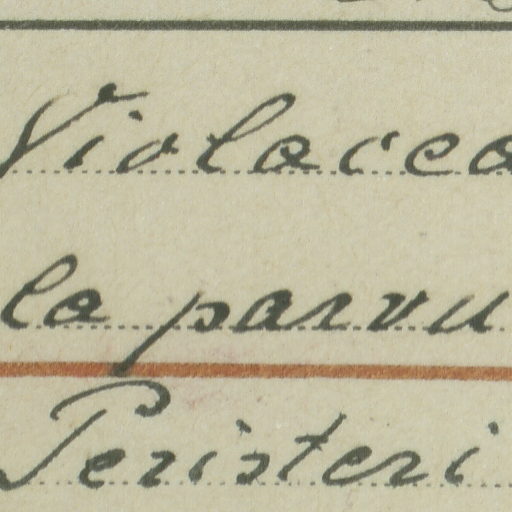 Violacea
la parvu
Peristeri